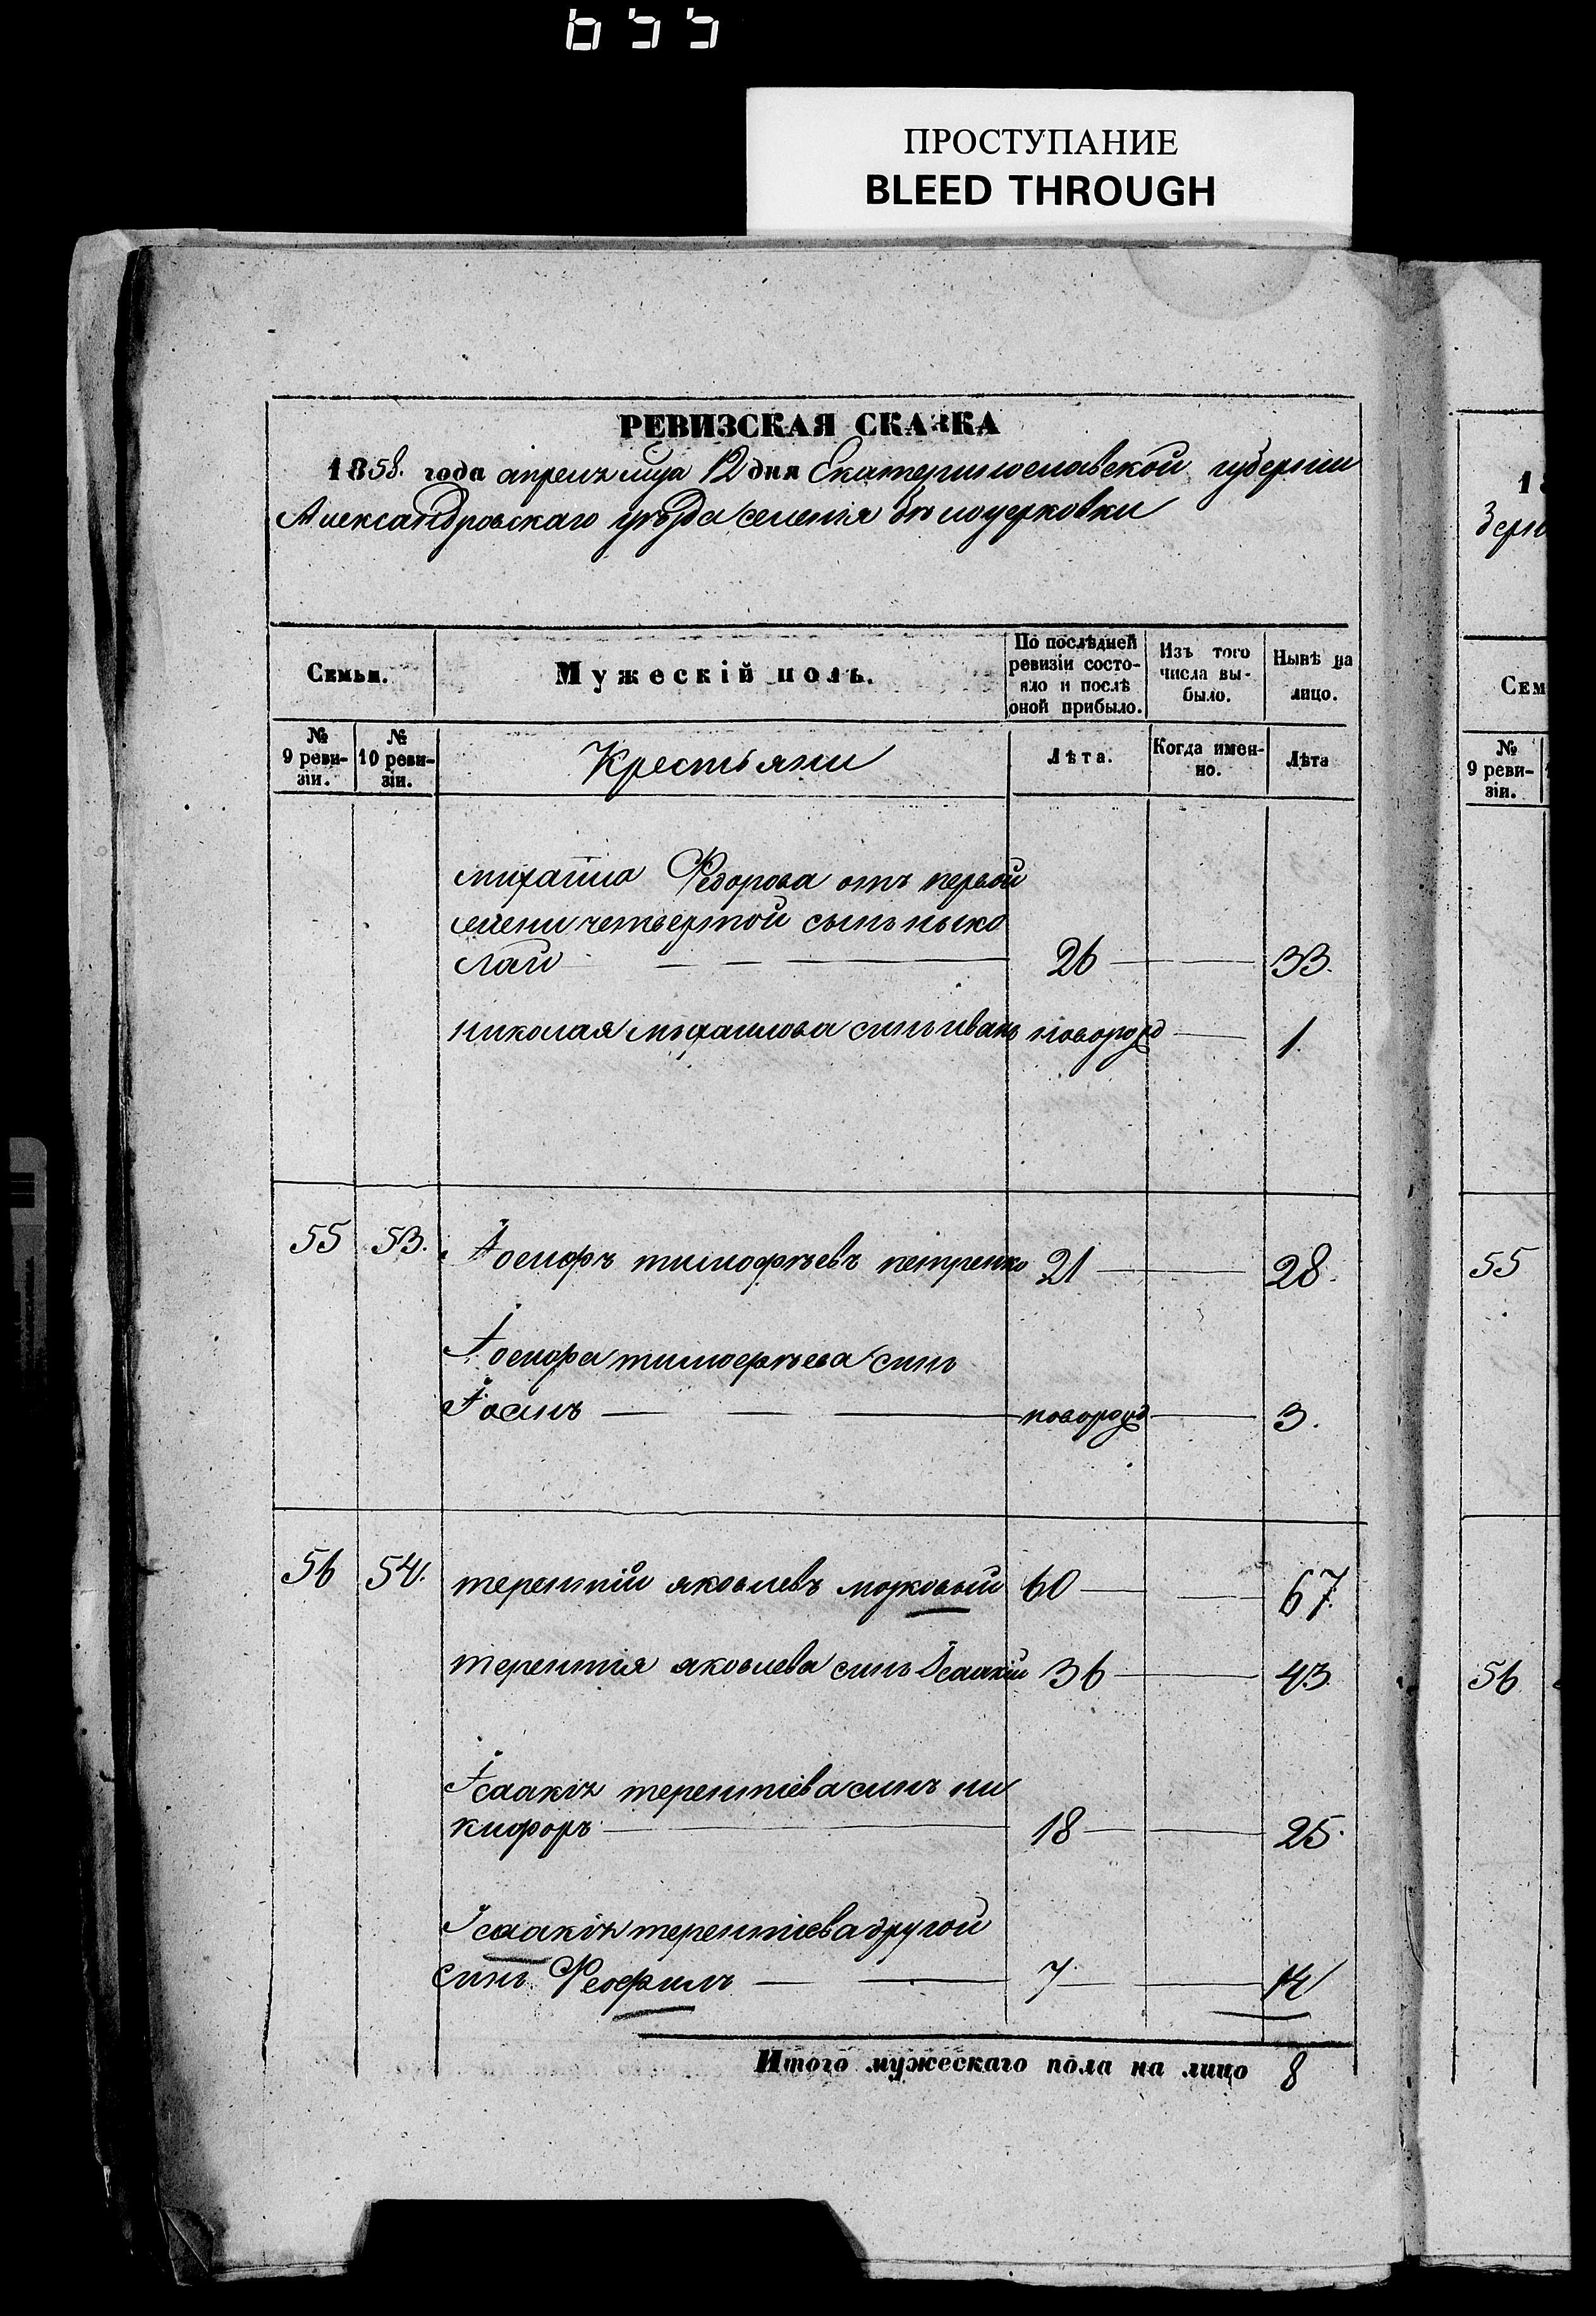 655
ПРОСТУПАНИЕ
BLEED THROUGH
РЕВИЗСКАЯ СКАЗКА
1858. года апреля мца 12 дня Екатеринославской губернии
Александровскаго уѣзда селенія бѣлоцерковки
Семьи.
Мужескій полъ.
По послѣдней ревизіи состояло и послѣ оной прибыло.
Изъ того числа выбыло.
Нынѣ на лицо.
№ 9 ревизіи.
№ 10 ревизіи.
Крестьяни
Лѣта.
Когда именно.
Лѣта
михаила Федорова отъ первой
жени четвертой сынъ ныко
лай 26 33.
николая михаилова синъ иванъ новорожд 1.
55 53. Іосифъ тимофѣевъ петренко 21 28.
Іосифа тимофѣева синъ
Іоанъ новорожд 3.
56 54. терентій яковлевъ мозковый 60 67.
терентія яковлева синъ Ісаакій 36 43.
Ісаакія терентіева синъ ни
кифоръ 18 25.
Ісаакія терентіева другой
синъ Феофилъ 7 14
Итого мужескаго пола на лицо 8
1
Зерн
Сем
№ 9 ревизіи.
55
56